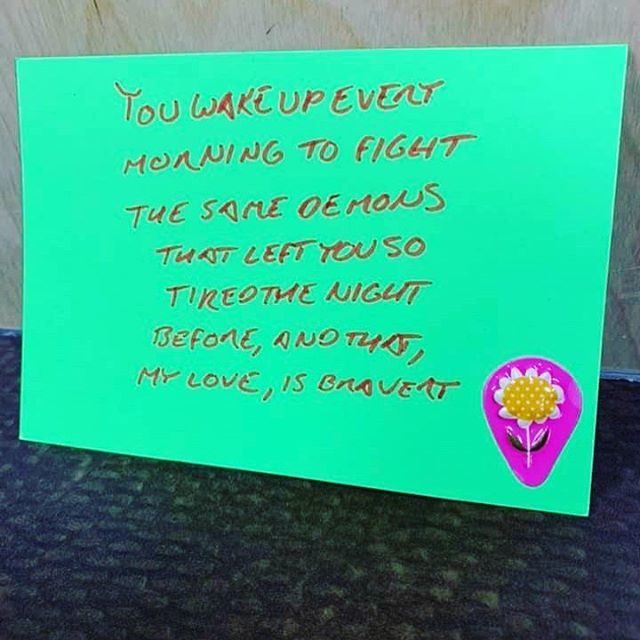 YOU WAKE UP EVERY
MORNING TO FIGHT
THE SAME DEMONS
THAT LEFT YOU SO
TIRED THE NIGHT
BEFORE, AND THAT,
MY LOVE, IS BRAVERY